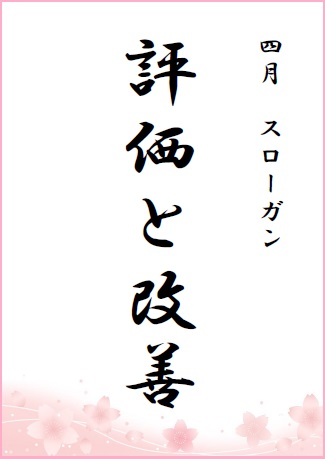 四月　スローガン
評価と改善